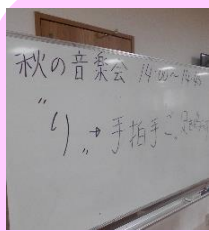 秋の音楽会 14:00〜14:45
"り"→手拍手